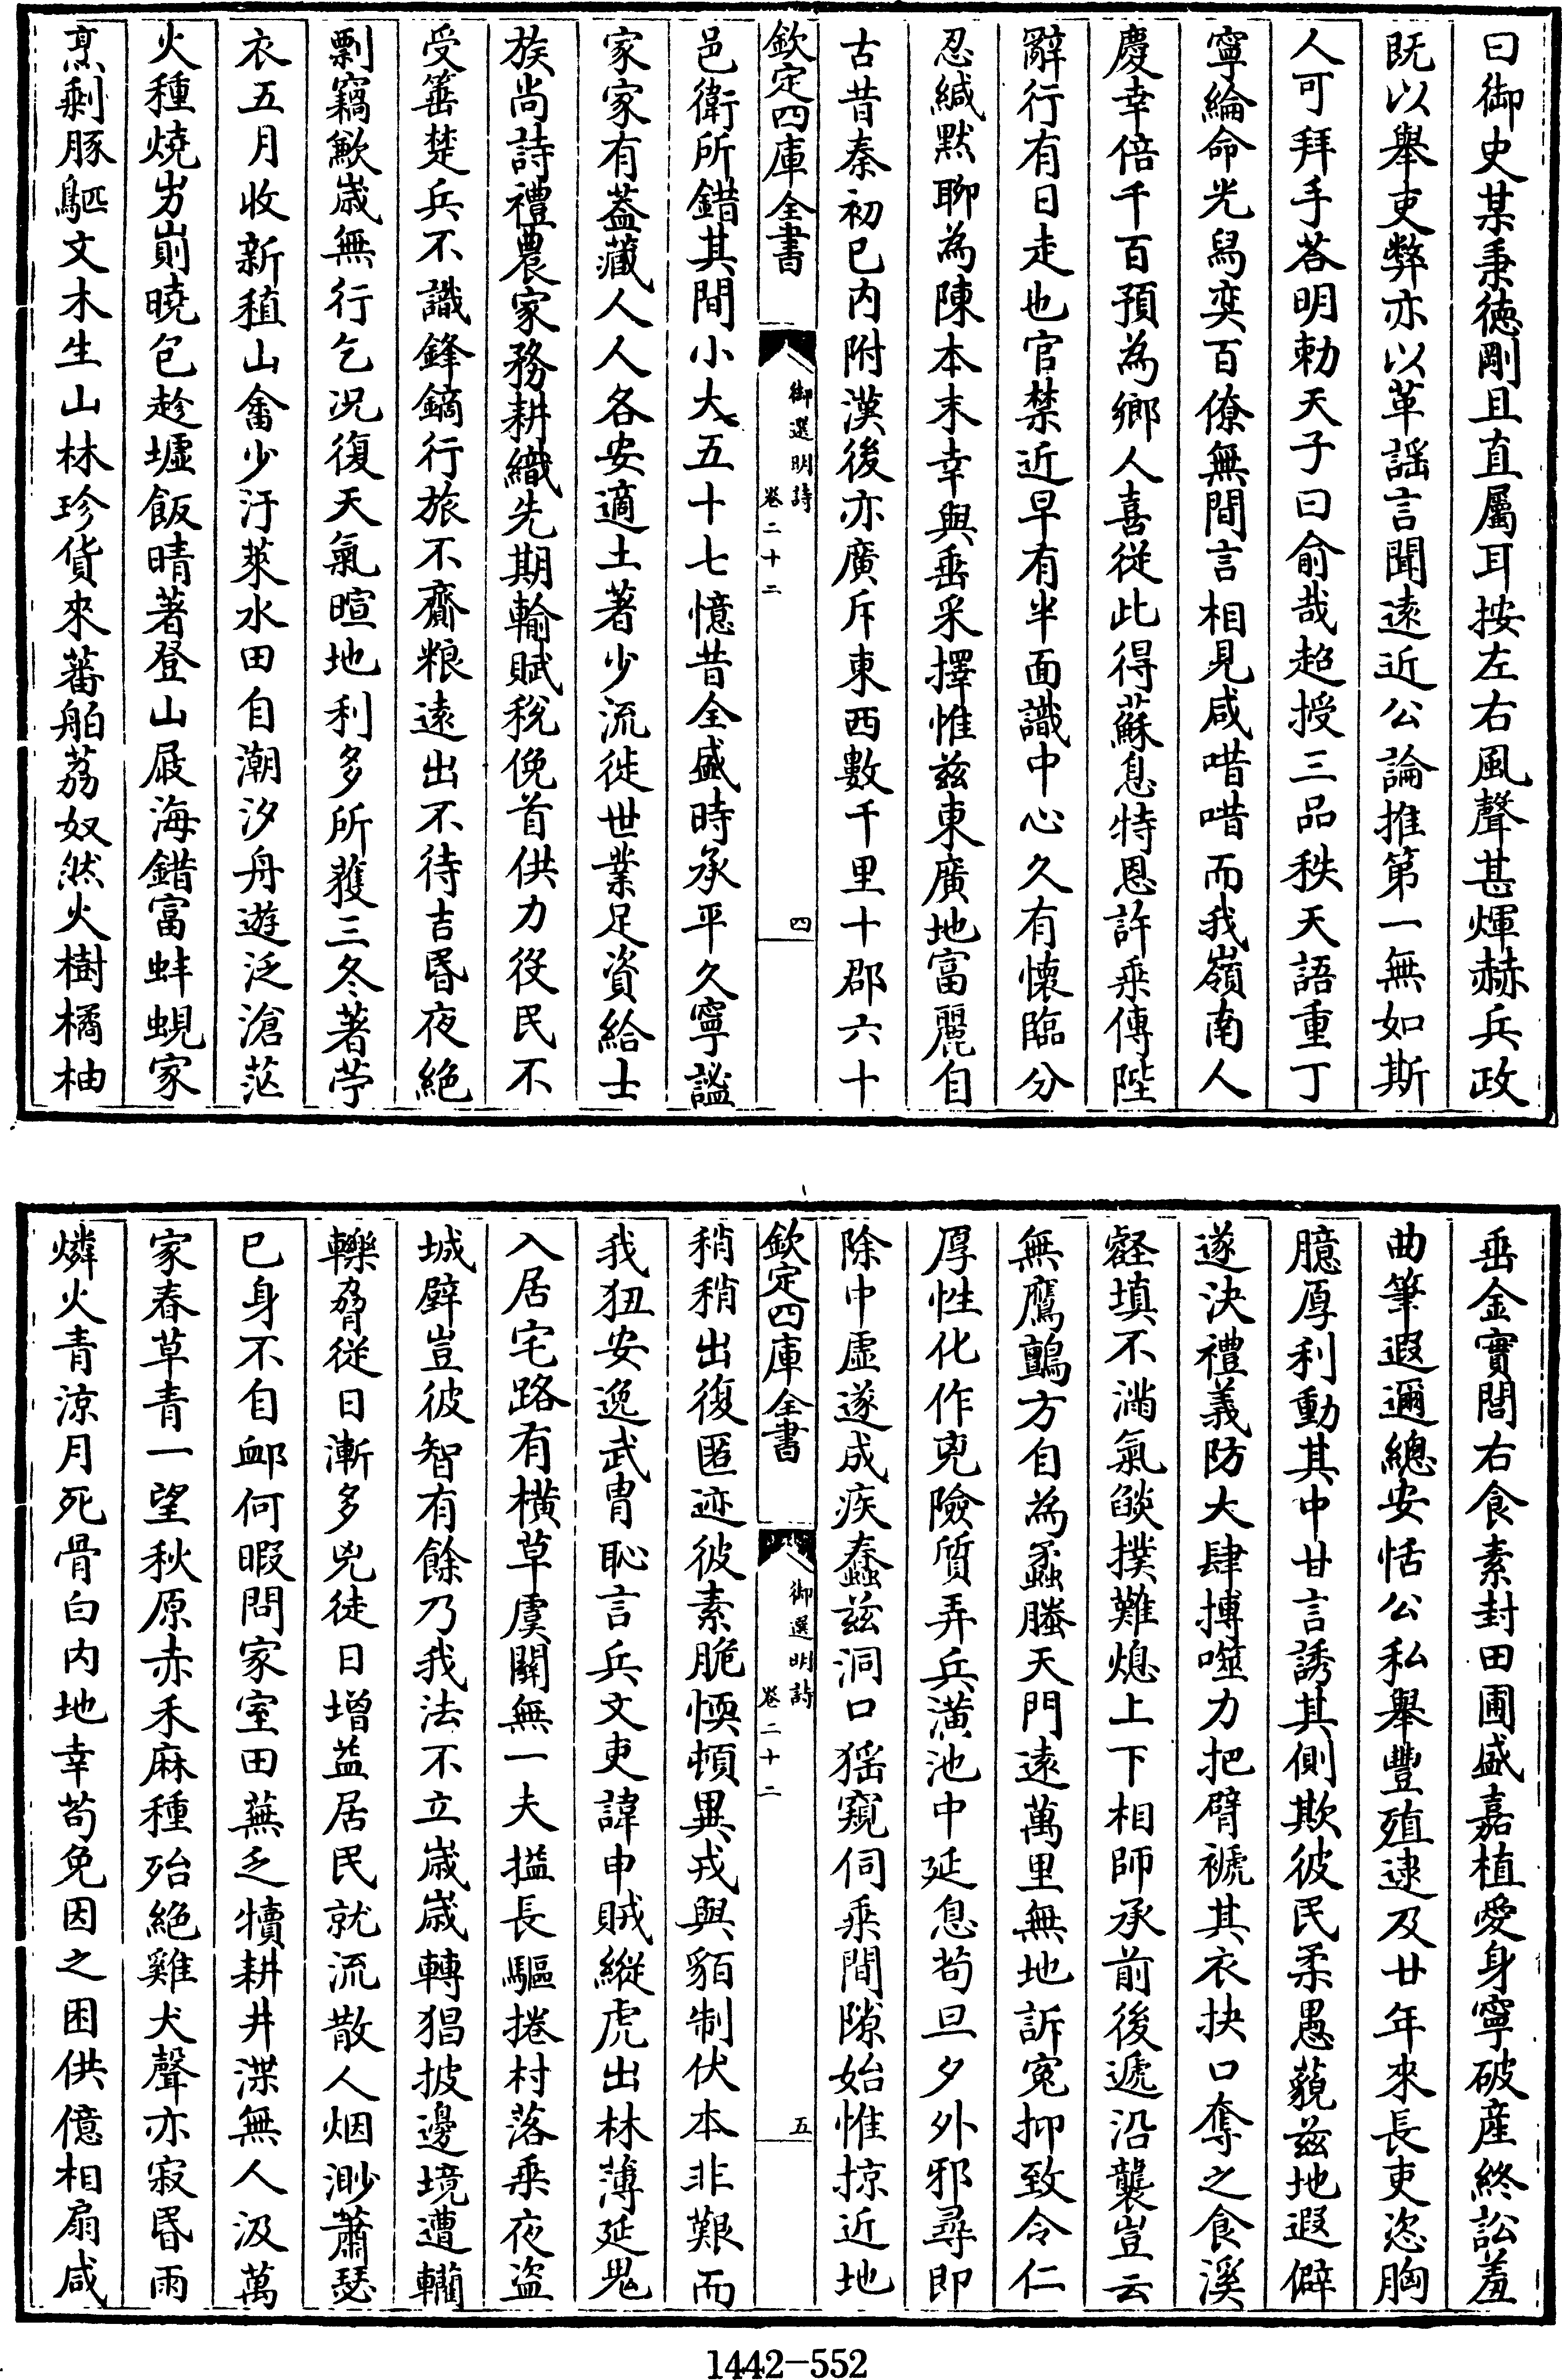 曰御史某秉徳剛且直屬耳按左右風聲甚煇赫兵政
既以舉吏弊亦以革謡言聞逺近公論推第一無如斯
人可拜手荅明勅天子曰俞哉超授三品秩天語重丁
寧綸命光舄奕百僚無間言相見咸唶唶而我嶺南人
慶幸倍千百預為鄉人喜從此得蘇息特恩許乗傳陛
辭行有日走也官禁近早有半面識中心久有懐臨分
忍緘黙聊為陳本末幸與垂采擇惟兹東廣地富麗自
古昔秦初已内附漢後亦廣斥東西數千里十郡六十
欽定四庫全書
御選明詩
卷二十二
四
邑衛所錯其間小大五十七憶昔全盛時承平久寧謐
家家有葢藏人人各安適土著少流徙世業足資給士
族尚詩禮農家務耕織先期輸賦税俛首供力役民不
受箠楚兵不識鋒鏑行旅不齎粮逺出不待吉昏夜絶
剽竊歉嵗無行乞况復天氣暄地利多所獲三冬著苧
衣五月收新稙山畬少汙萊水田自潮汐舟遊泛滄茫
火種燒岃崱曉包趁墟飯晴著登山屐海錯富蚌蜆家
烹剩豚䭾文木生山林珍貨來蕃舶荔奴然火樹橘柚
垂金實閭右食素封田圃盛嘉植愛身寧破産終訟羞
曲筆遐邇總安恬公私舉豐殖逮及廿年來長吏恣胸
臆厚利動其中甘言誘其側欺彼民柔愚藐兹地遐僻
遂決禮義防大肆搏噬力把臂褫其衣抉口奪之食溪
壑填不滿氣燄撲難熄上下相師承前後遞沿襲豈云
無鷹鸇方自為蟊螣天門逺萬里無地訴寃抑致令仁
厚性化作兇險質弄兵潢池中延息苟旦夕外邪尋即
除中虚遂成疾蠢兹洞口猺窺伺乗間隙始惟掠近地
欽定四庫全書
御選明詩
卷二十二
五
稍稍出復匿迹彼素脆愞頓異戎與貊制伏本非艱而
我狃安逸武胄恥言兵文吏諱申賊縱虎出林薄延鬼
入居宅路有橫草虞關無一夫搤長驅捲村落乗夜盜
城壁豈彼智有餘乃我法不立嵗嵗轉猖披邊境遭轥
轢脅從日漸多兇徒日增益居民就流散人烟渺蕭瑟
已身不自䘏何暇問家室田蕪乏犢耕井渫無人汲萬
家春草青一望秋原赤禾麻種殆絶雞犬聲亦寂昏雨
燐火青涼月死骨白内地幸苟免因之困供億相扇咸
1442-552